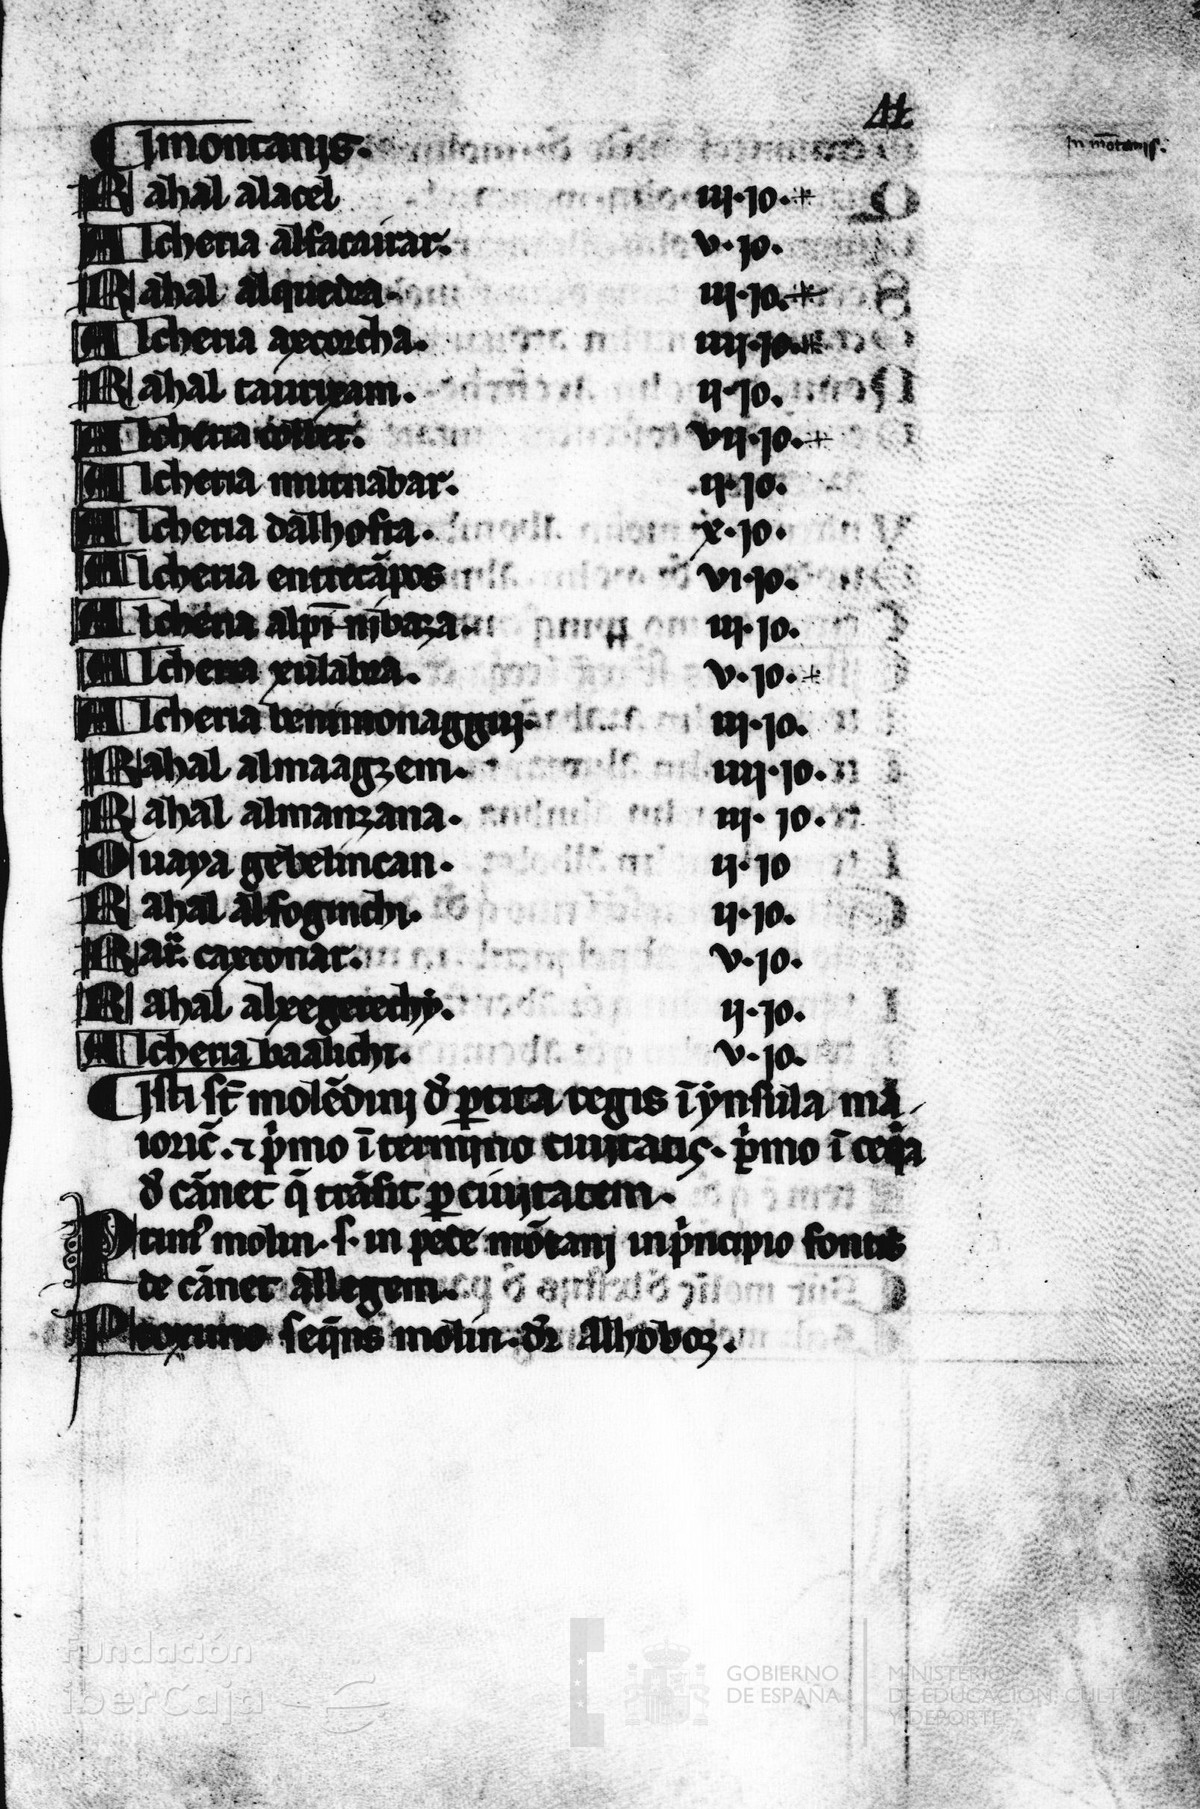 11
In mōtanis.
Imontanis.
Rahal alacel iij·io·
Alcheria alfacairar. v·io.
Rahal alquedra. iij·io.
Alcheria axcorcha. iiij·io.
Rahal tauryxam. ij·io.
Alcheria coller. vij·io.
Alcheria mutnabar. ij·io.
Alcheria dalhofra. x·io.
Alcheria entrecāpos vi·io.
Alcheria alpī nībaza. iij·io.
Alcheria xulabra. v·io.
Alcheria benimonaggiij. iij·io.
Rahal almaagzem. iiij·io.
Rahal almanzana. iij·io.
Duaya gebelincan. ij·io
Rahal alfoginchi. ij·io.
Rar̄. caxconar. v·io.
Rahal alxegerechi. ij·io.
Alcheria baalichi. v·io.
Isti st̄ molēdinj d̄ ꝑtita regis ī ynsula ma
ioric̄. ⁊ p̄mo ī termino ciuitatis. p̄mo ī ceq̄a
d̄ cānet q̄ trāsit ꝑ ciuitatem.
molin. s. in pede mōtanj in p̄ncipio fontis
de cānet allegem.
seq̄ns molin. dr̄ Alhoboz.
Fundación
iberCaja
GOBIERNO
DE ESPAÑA
MINISTERIO
DE EDUCACIÓN, CULTURA
Y DEPORTE